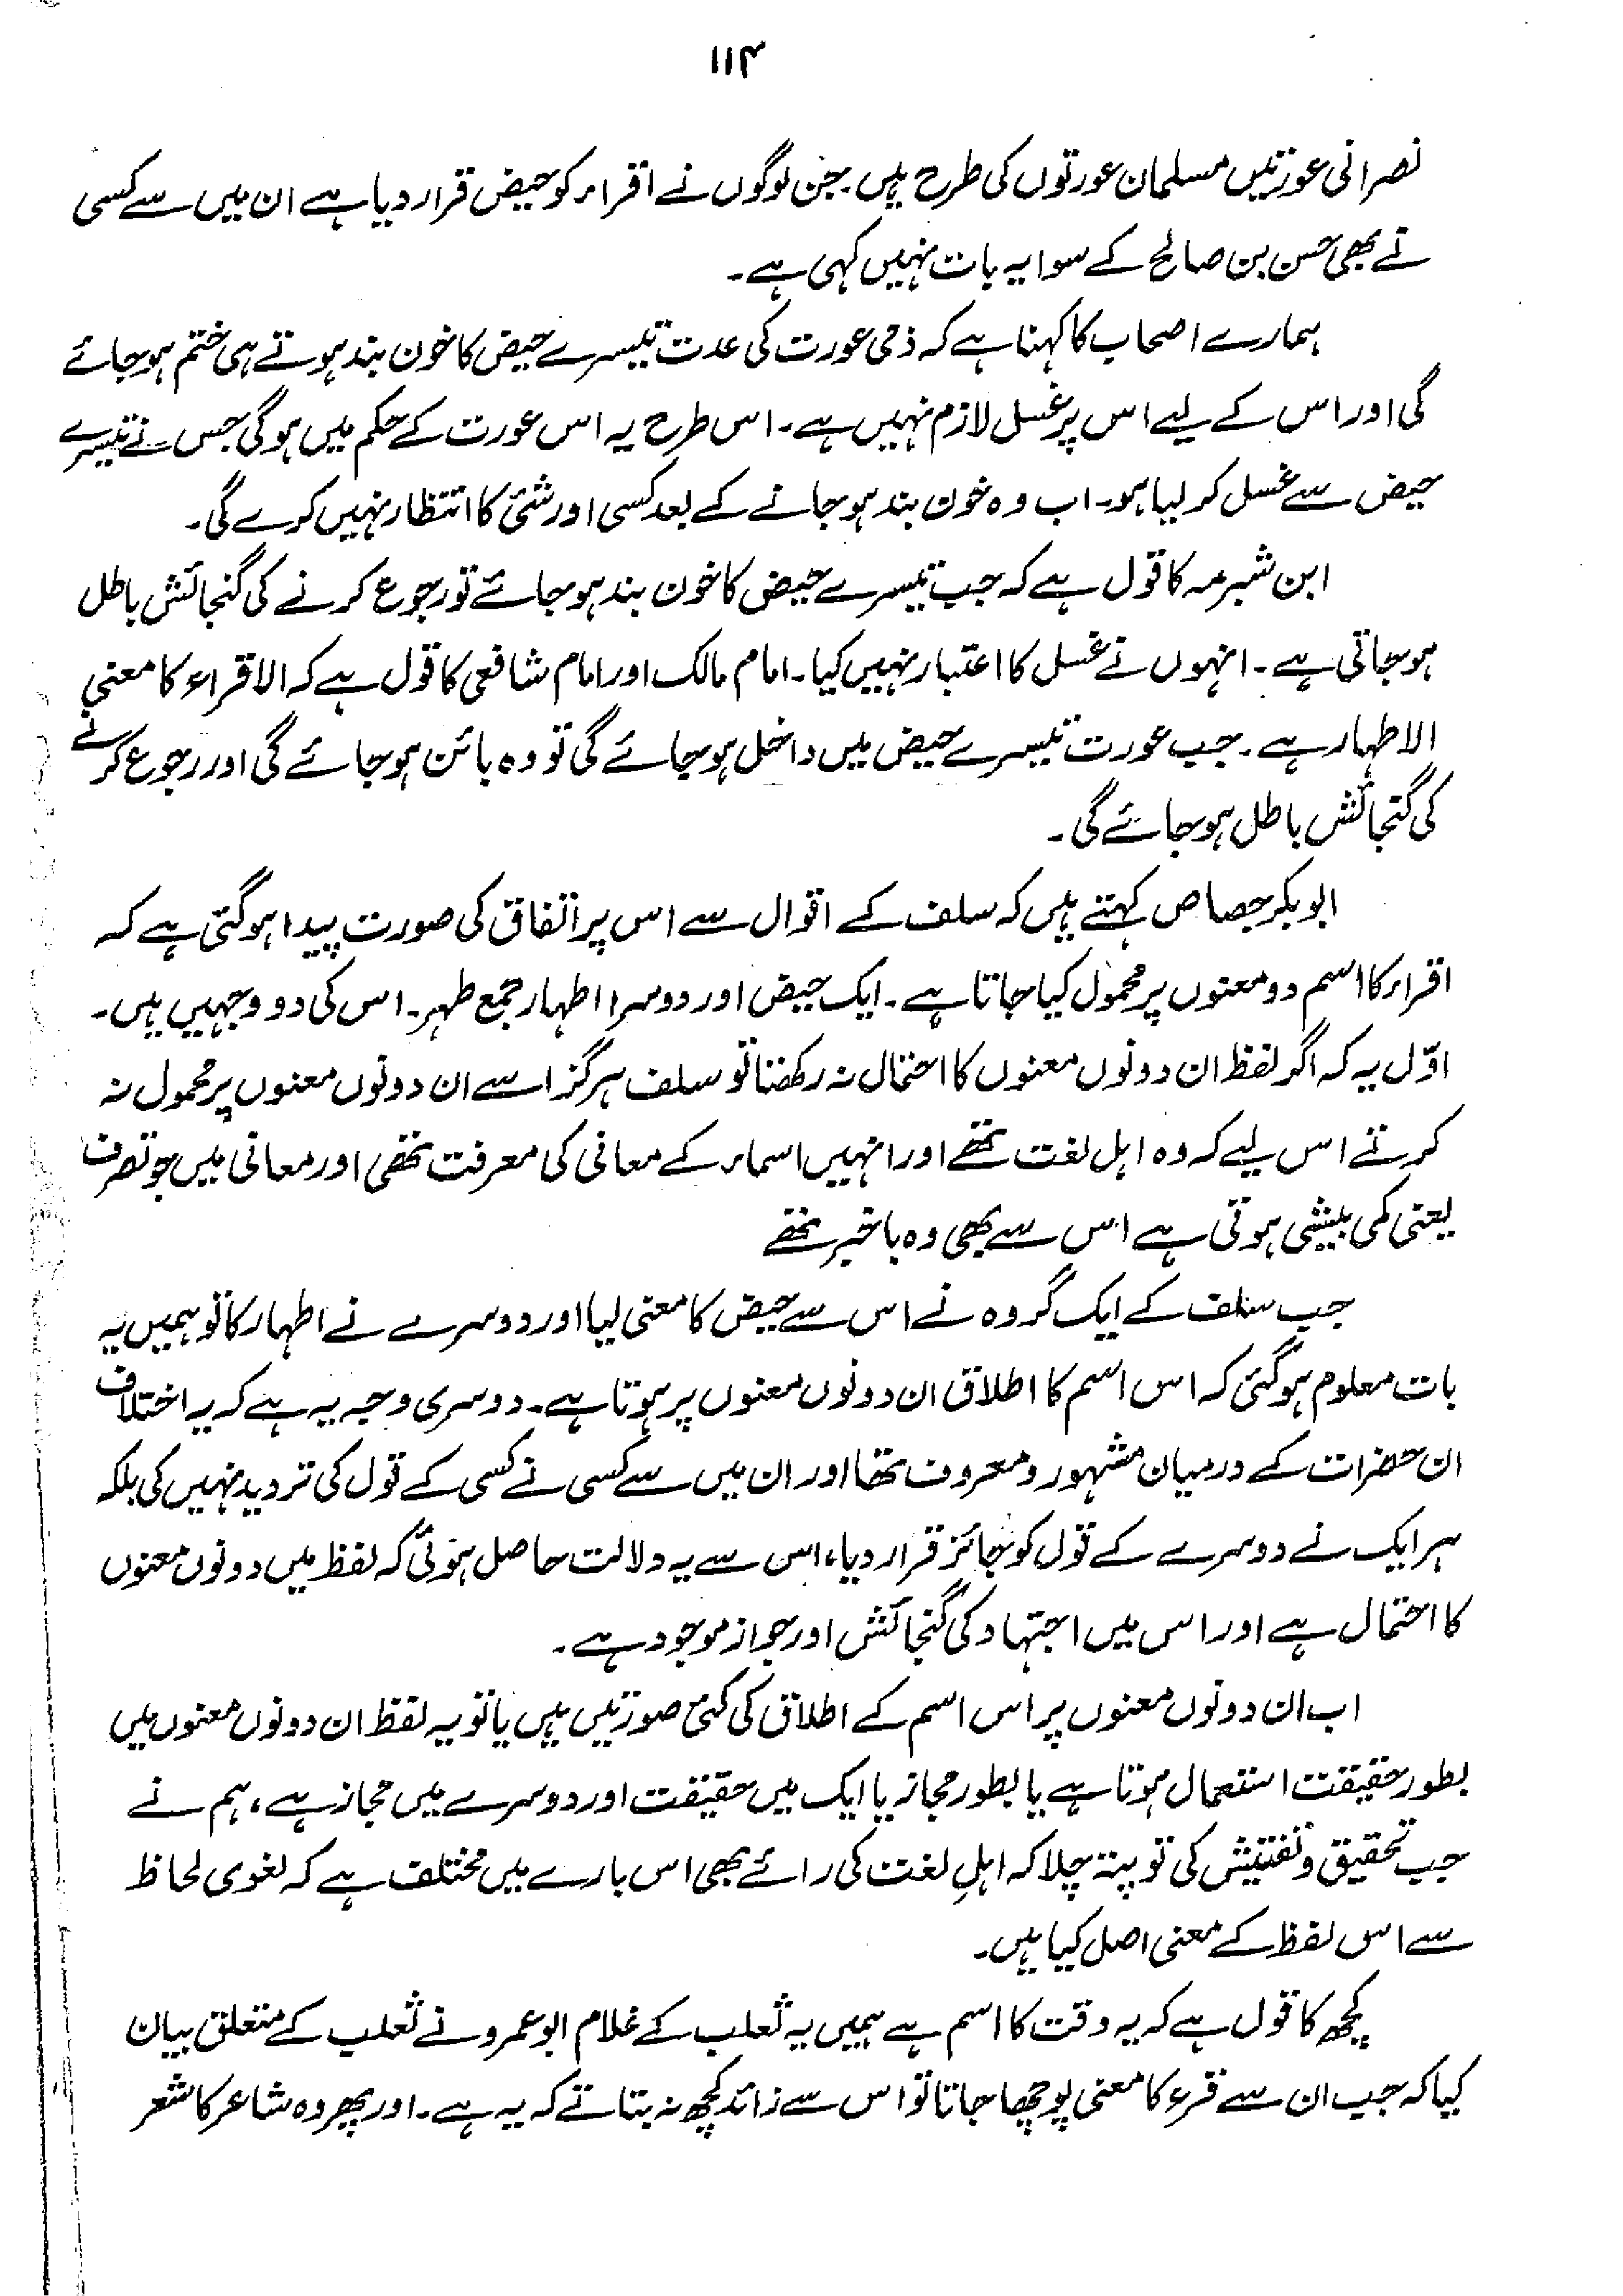 ۱۱۴
نصرانی عورتیں مسلمان عورتوں کی طرح ہیں۔ جن لوگوں نے اقراء کو حیض قرار دیا ہے ان میں سے کسی
نے بھی حسن بن صالح کے سوا یہ بات نہیں کہی ہے۔
ہمارے اصحاب کا کہنا ہے کہ ذمی عورت کی عدت تیسرے حیض کا خون بند ہوتے ہی ختم ہو جائے
گی اور اس کے لیے اس پر غسل لازم نہیں ہے۔ اس طرح یہ اس عورت کے حکم میں ہو گی جس نے تیسرے
حیض سے غسل کر لیا ہو۔ اب وہ خون بند ہو جانے کے بعد کسی اور شئی کا انتظار نہیں کرے گی۔
ابن شبرمہ کا قول ہے کہ جب تیسرے حیض کا خون بند ہو جائے تو رجوع کرنے کی گنجائش باطل
ہو جاتی ہے۔ انہوں نے غسل کا اعتبار نہیں کیا۔ امام مالک اور امام شافعی کا قول ہے کہ الاقراء کا معنی
الاطہار ہے۔ جب عورت تیسرے حیض میں داخل ہو جائے گی تو وہ بائن ہو جائے گی اور رجوع کرنے
کی گنجائش باطل ہو جائے گی۔
ابوبکر جصاص کہتے ہیں کہ سلف کے اقوال سے اس پر اتفاق کی صورت پیدا ہو گئی ہے کہ
اقراء کا اسم دو معنوں پر محمول کیا جاتا ہے۔ ایک حیض اور دوسرا اطہار جمع طہر۔ اس کی دو وجہیں ہیں۔
اوّل یہ کہ اگر لفظ ان دونوں معنوں کا احتمال نہ رکھتا تو سلف ہرگز اسے ان دونوں معنوں پر محمول نہ
کرتے اس لیے کہ وہ اہل لغت تھے اور انہیں اسماء کے معانی کی معرفت تھی اور معانی میں جو تصرف
یعنی کمی بیشی ہوتی ہے اس سے بھی وہ باخبر تھے
جب سلف کے ایک گروہ نے اس سے حیض کا معنی لیا اور دوسرے نے اطہار کا تو ہمیں یہ
بات معلوم ہو گئی کہ اس اسم کا اطلاق ان دونوں معنوں پر ہوتا ہے۔ دوسری وجہ یہ ہے کہ یہ اختلاف
ان حضرات کے درمیان مشہور و معروف تھا اور ان میں سے کسی نے کسی کے قول کی تردید نہیں کی بلکہ
ہر ایک نے دوسرے کے قول کو جائز قرار دیا، اس سے یہ دلالت حاصل ہوئی کہ لفظ میں دونوں معنوں
کا احتمال ہے اور اس میں اجتہاد کی گنجائش اور جواز موجود ہے۔
اب ان دونوں معنوں پر اس اسم کے اطلاق کی کئی صورتیں ہیں یا تو یہ لفظ ان دونوں معنوں میں
بطور حقیقت استعمال ہوتا ہے یا بطور مجاز یا ایک میں حقیقت اور دوسرے میں مجاز ہے، ہم نے
جب تحقیق و تفتیش کی تو پتہ چلا کہ اہلِ لغت کی رائے بھی اس بارے میں مختلف ہے کہ لغوی لحاظ
سے اس لفظ کے معنی اصل کیا ہیں۔
کچھ کا قول ہے کہ یہ وقت کا اسم ہے ہمیں یہ ثعلب کے غلام ابوعمرو نے ثعلب کے متعلق بیان
کیا کہ جب ان سے قرء کا معنی پوچھا جاتا تو اس سے زائد کچھ نہ بتاتے کہ یہ ہے۔ اور پھر وہ شاعر کا شعر